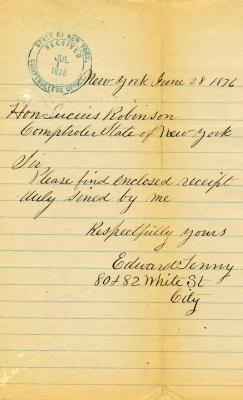 STATE OF NEW YORK,
RECEIVED
JUL
1876
COMPTROLLERS OFFICE
New York June 28 1876
Hon Lucius Robinson
Comptroler State of New York
Sir
Please find enclosed receipt
duly sined by me
Respectfully yours
Edward Tenny
80 & 82 White St
City